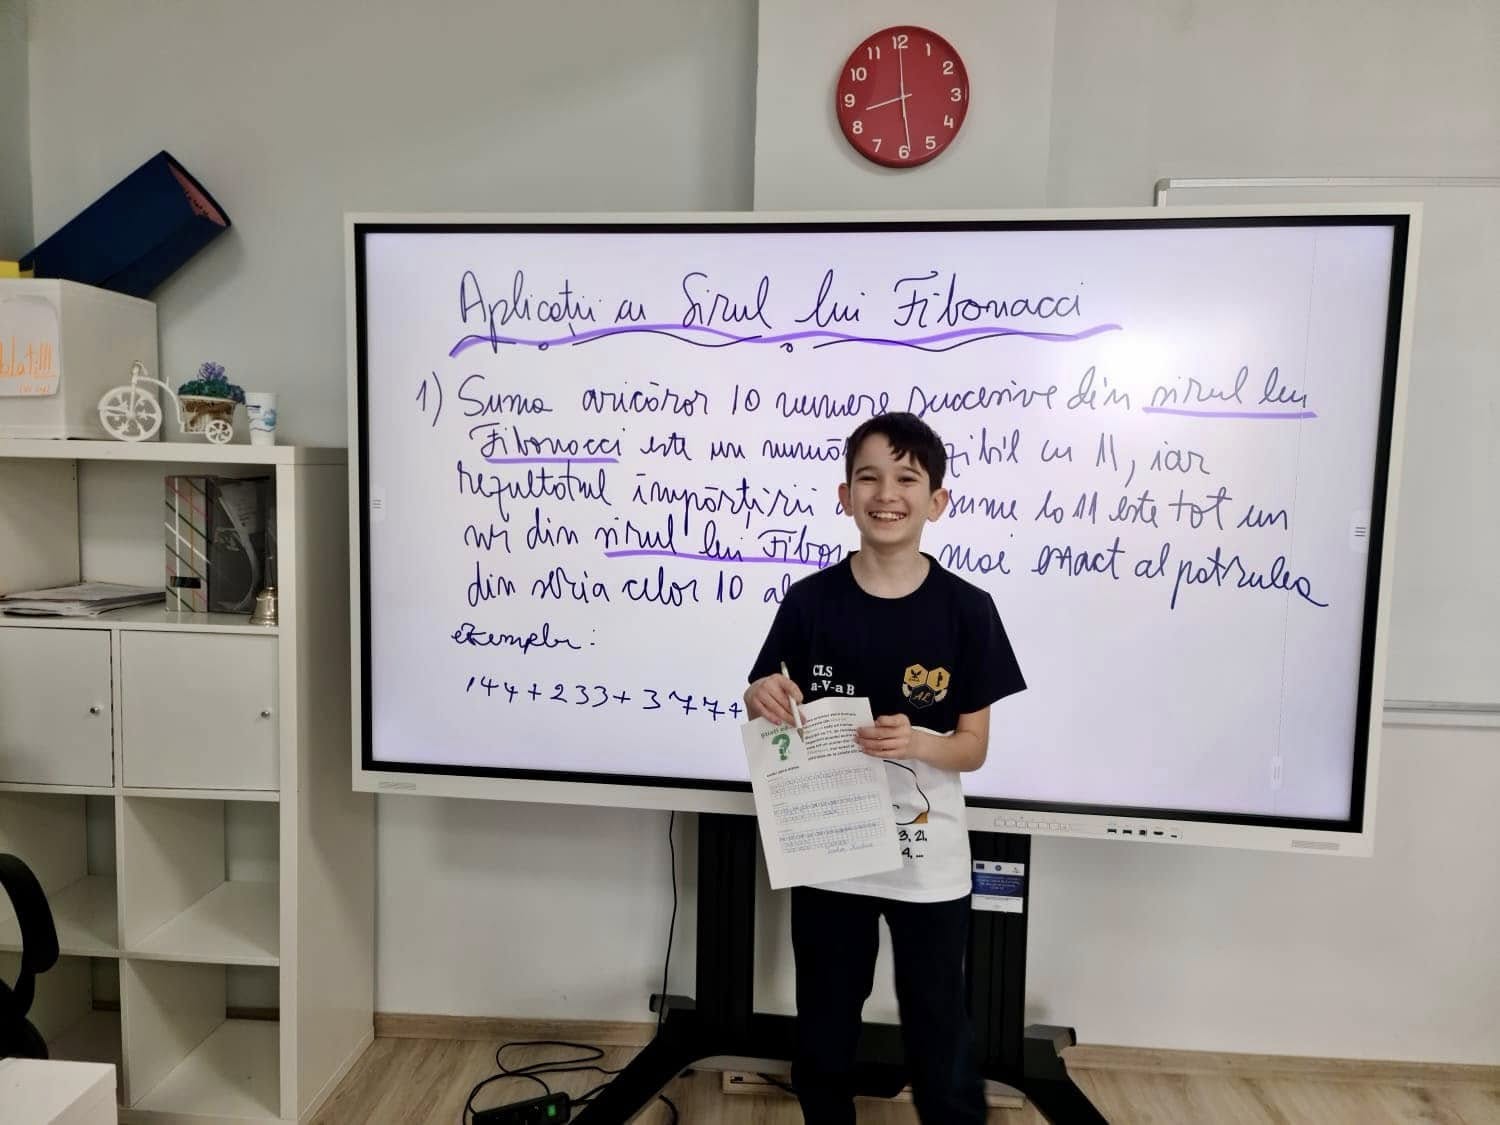 12
11 1
10 2
9 3
8 4
7 5
6
Aplicații cu Sirul lui Fibonacci
1) Suma oricăror 10 numere succesive din sirul lui
Fibonacci este un număr zibil cu 11, iar
rezultatul împărțirii sume la 11 este tot un
nr din sirul lui Fibon mai exact al patrulea
din seria celor 10 al
exemplu:
144+233+377+
CLS
a-V-a B
Știați că
?
3, 21,
4, ...